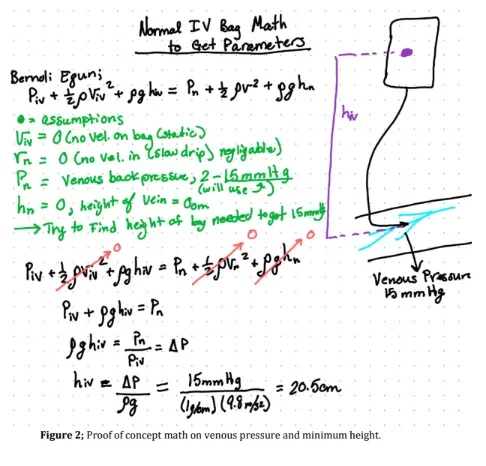 Normal IV Bag Math
to Get Parameters
Bernoli Equn;
Piv + ½ρViv² + ρghiv = Pn + ½ρv² + ρghn
● = assumptions
Viv = 0 (no vel. on bag (static)
vn = 0 (no vel. in (slow drip) negligable)
Pn = Venous back pressure, 2 - 15mmHg
(will use ↑)
hn = 0, height of vein = 0cm
→ Try to Find height of bag needed to get 15mmHg
Piv + ½ρViv² + ρghiv = Pn + ½ρVn² + ρghn
0 0 0
Piv + ρghiv = Pn
ρghiv = Pn/Piv = ΔP
hiv = ΔP/ρg = 15mmHg/(1g/cm)(9.8m/s2) = 20.5cm
hiv
Venous Pressure
15 mmHg
Figure 2; Proof of concept math on venous pressure and minimum height.